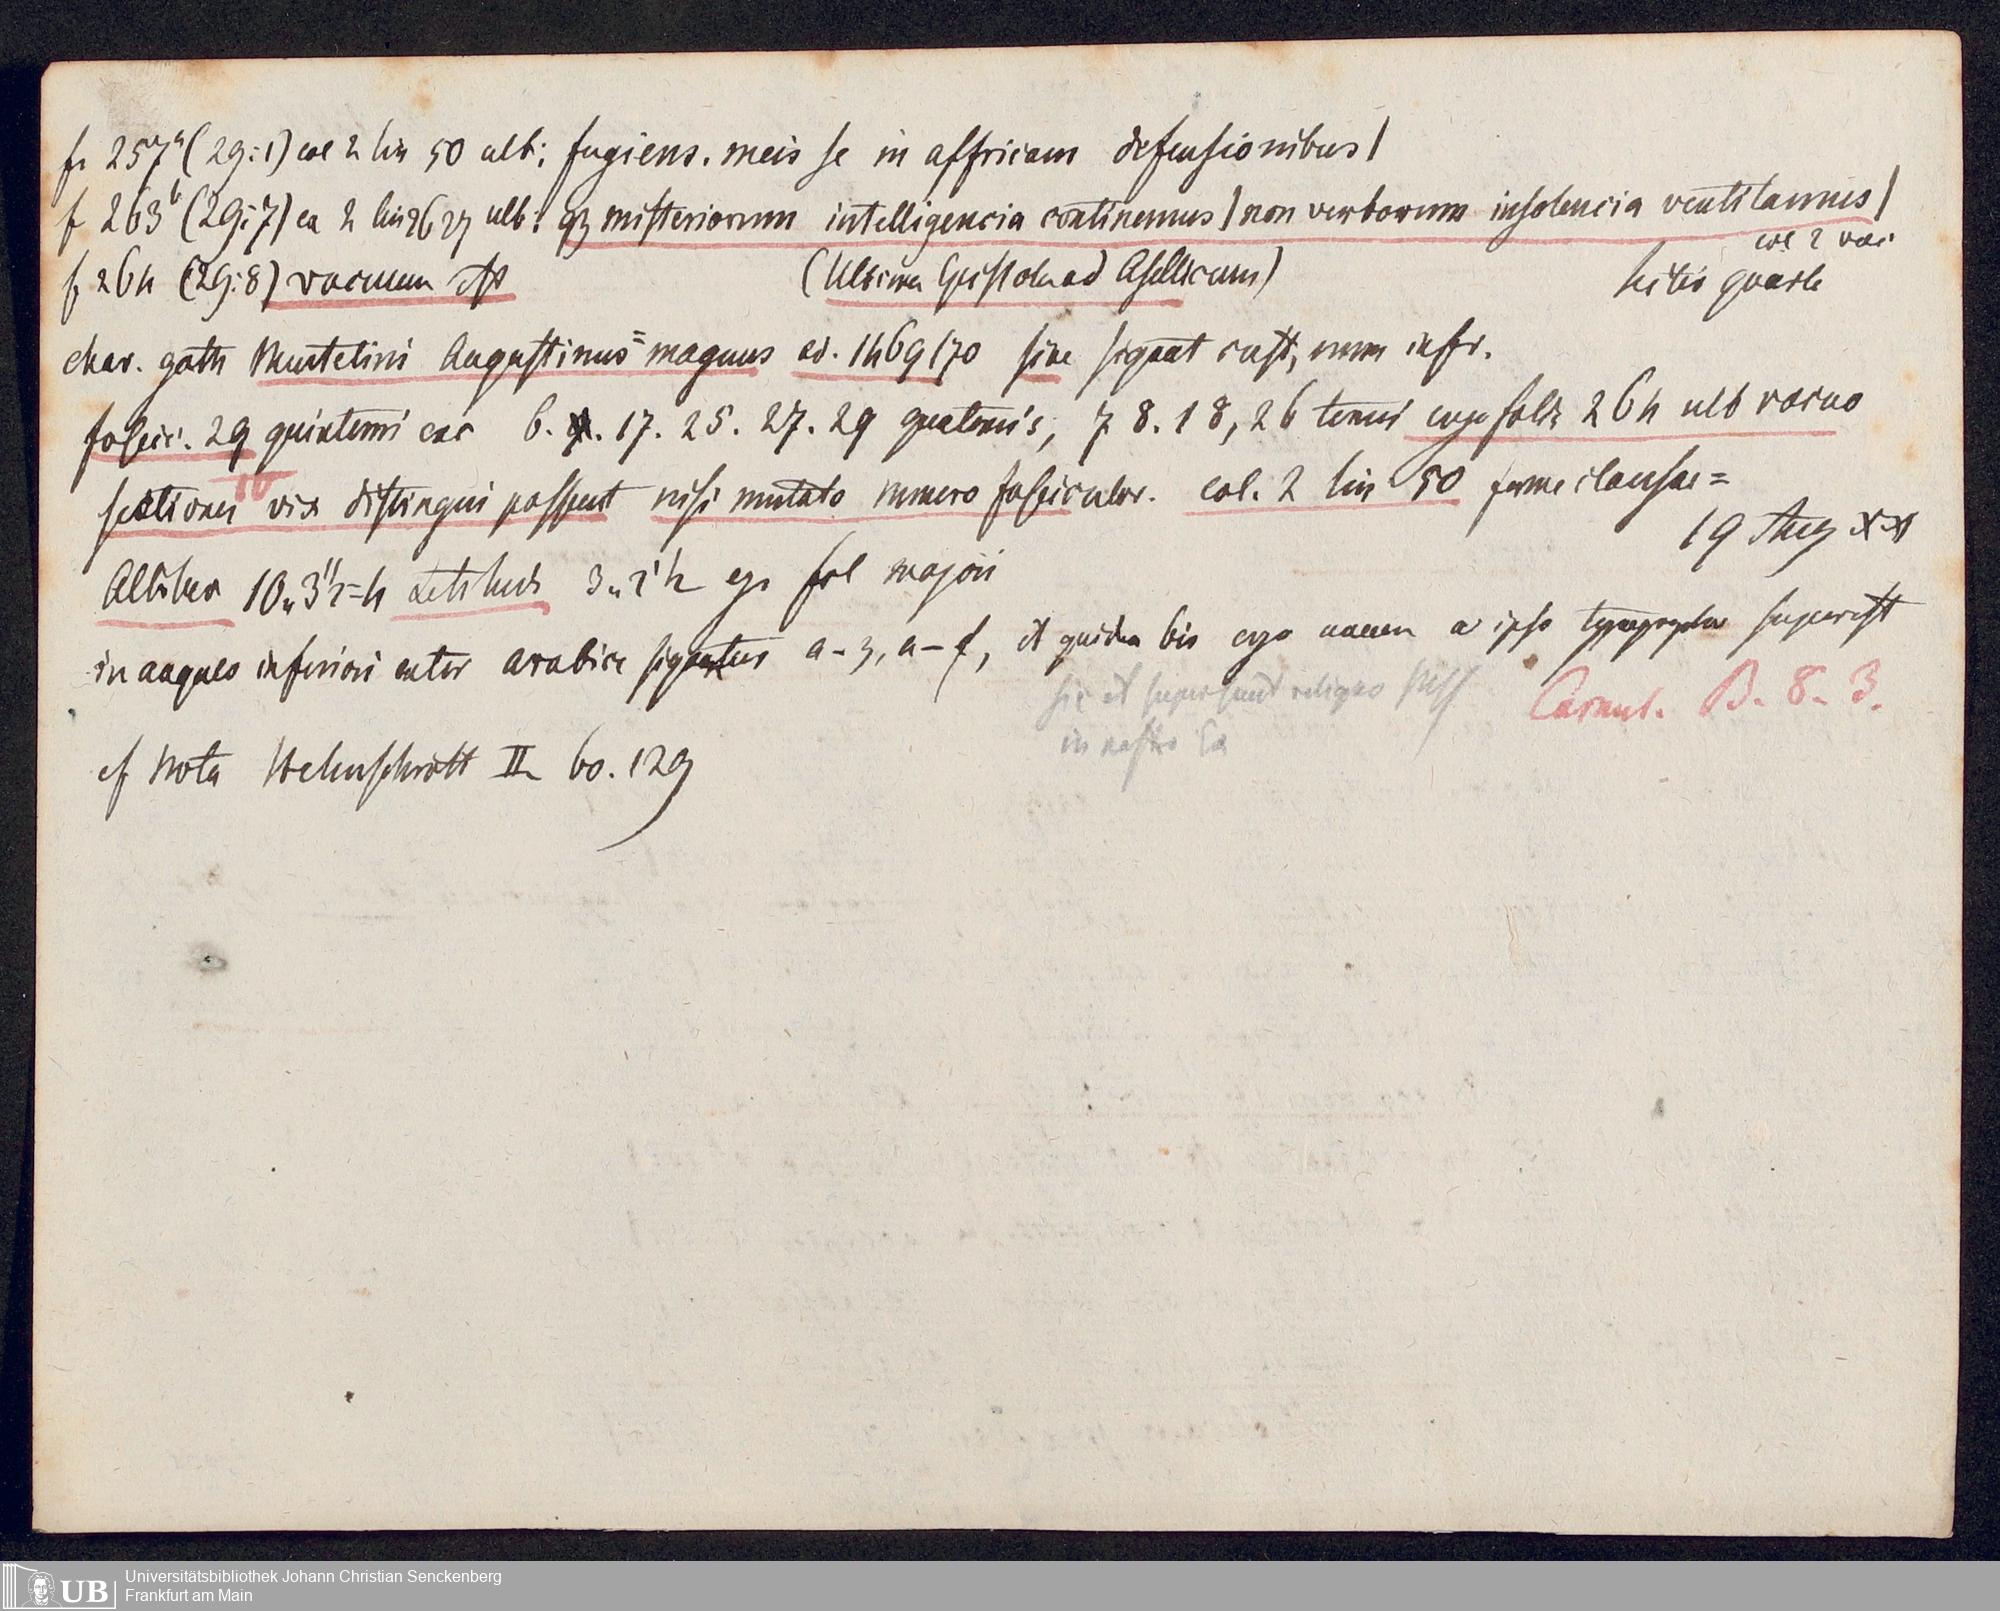 f. 257a (29:1) col 2 lin 50 ult: fugiens. meis se in affricam defensionibus/
f 263b (29:7) ca 2 lin 26 27 ult: qz misteriorum intelligencia continemus/non verborum insolencia ventilamus/
col 2 vac
f 264 (29:8) vacuum est (Ultima Epistola ad Asellicum)
char. goth Mentelini Augustinus=magnus ed. 1469/70 sine signat cust, num infr.
fascic. 29 quinterni exc 6. 17. 25. 27. 29 quaternis, 7 8. 18, 26 terni ergo folia 264 ult vacuo
10
sectiones vix distingui possent nisi mutato numero fasciculor. col. 2 lin 50 ferme clausae=
19 Aug
Altitudo 10"3"2=4 Latitudo 3"2'2 fol majori
in angulo inferiori exter arabice signatus a-z, a-f, et quidem bis ergo a ipso typographo superest
sic et supersunt reliquo Mss
in nostro Ex
Carmel. B. 8. 3.
cf Nota II 60. 129
Universitätsbibliothek Johann Christian Senckenberg
Frankfurt am Main
UB